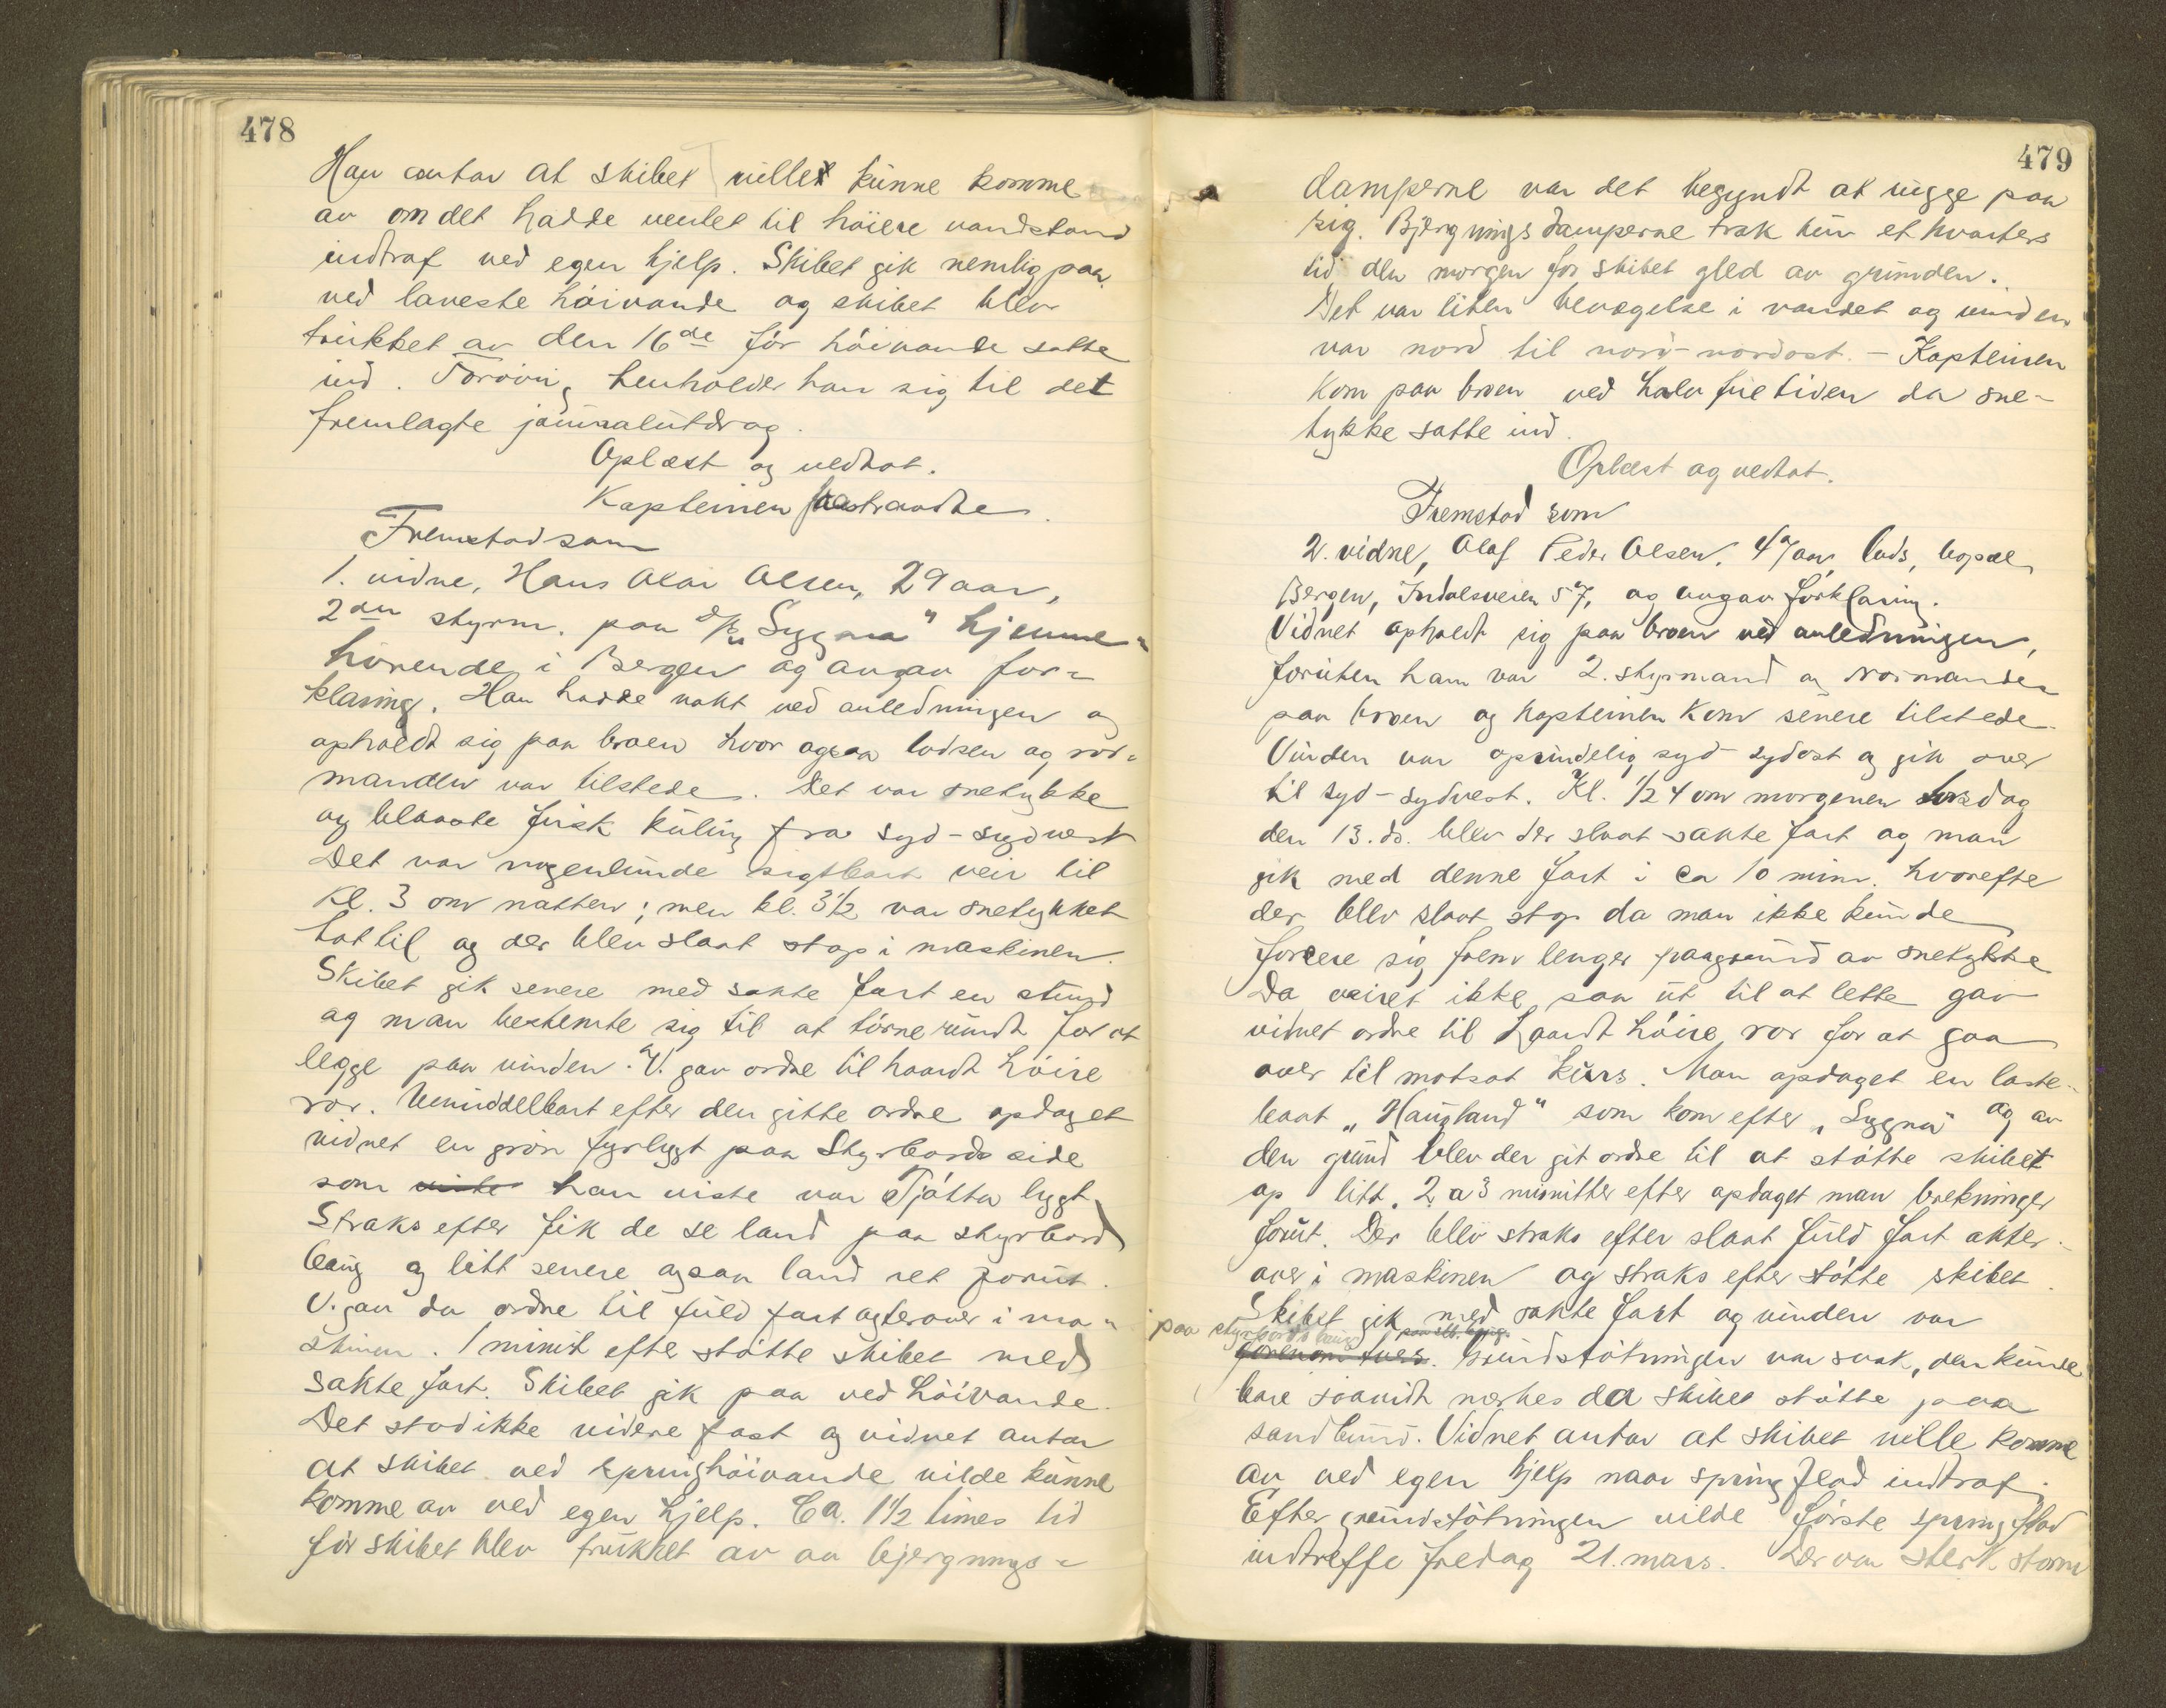 478
Han antar at skibet ville kunne komme
av om det hadde ventet til høiere vandstand
indtraf ved egen hjelp. Skibet gik nemlig paa
ved laveste høivande og skibet blev
trukket av den 16de før høivande satte
ind. Forøvrig henholder han sig til det
fremlagte journalutdrag.
Oplæst og vedtat.
Kapteinen fratraadte.
Fremstod som
1. vidne, Hans Olai Olsen, 29 aar,
2den styrm. paa D/S „Sygna" hjemme-
hørende i Bergen og avgav for-
klaring. Han hadde vakt ved anledningen og
opholdt sig paa broen hvor ogsaa lodsen og ror-
manden var tilstede. Det var snetykke
og blaaste frisk kuling fra syd-sydvest
Det var nogenlunde sigtbart veir til
Kl. 3 om natten; men kl. 3½ var snetykket
tat til og der blev slaat stop i maskinen.
Skibet gik senere med sakte fart en stund
og man bestemte sig til at tørne rundt for at
legge paa vinden. V. gav ordre til haardt høire
ror. Umiddelbart efter den gitte ordre opdaget
vidnet en grøn fyrlygt paa Styrbords side
som viste han viste var Tjøtta lygt
Straks efter fik de se land paa styrbord
baug og litt senere ogsaa land ret forut.
V. gav da ordre til fuld fart agterover i ma-
skinen. 1 minut efter støtte skibet med
sakte fart. Skibet gik paa ved høivande.
Det stod ikke videre fast og vidnet antar
at skibet ved springhøivande vilde kunne
komme av ved egen hjelp. Ca. 1½ times tid
før skibet blev trukket av av bjergnings-
479
damperne var det begyndt at rugge paa
sig. Bjergningsdamperne trak kun et kvarters
tid den morgen før skibet gled av grunden.
Det var liten bevægelse i vandet og vinden
var nord til nord-nordost. - Kapteinen
kom paa broen ved halv fire tiden da sne-
tykke satte ind.
Oplæst og vedtat.
Fremstod som
2. vidne, Olaf Peder Olsen, 47 aar, lods, bopæl
Bergen, Indalsveien 57, og avgav forklaring.
Vidnet opholdt sig paa broen ved anledningen,
foruten ham var 2. styrmand og rormanden
paa broen og kapteinen kom senere tilstede.
Vinden var oprindelig syd-sydost og gik over
til syd-sydvest. Kl. ½4 om morgenen torsdag
den 13. ds. blev der slaat sakte fart og man
gik med denne fart i ca 10 min. hvorefter
der blev slaat stop da man ikke kunde
forcere sig frem lenger paagrund av snetykke
Da veiret ikke saa ut til at lette gav
vidnet ordre til haardt høire ror for at gaa
over til motsat kurs. Man opdaget en laste-
baat „Haugland" som kom efter „Sygna" og av
den grund blev der git ordre til at støtte skibet
op litt. 2 a 3 minutter efter opdaget man brekninger
forut. Der blev straks efter slaat fuld fart akter-
over i maskinen og straks efter støtte skibet.
Skibet gik med sakte fart og vinden var
paa styrbords baug paa stb. baug.
forenom tvers. Grundstøtningen var svak, den kunde
bare saavidt merkes da skibet støtte paa
sandbund. Vidnet antar at skibet ville komme
av ved egen hjelp naar springflod indtraf.
Efter grundstøtningen vilde første springflod
indtreffe fredag 21. mars. Der var sterk storm